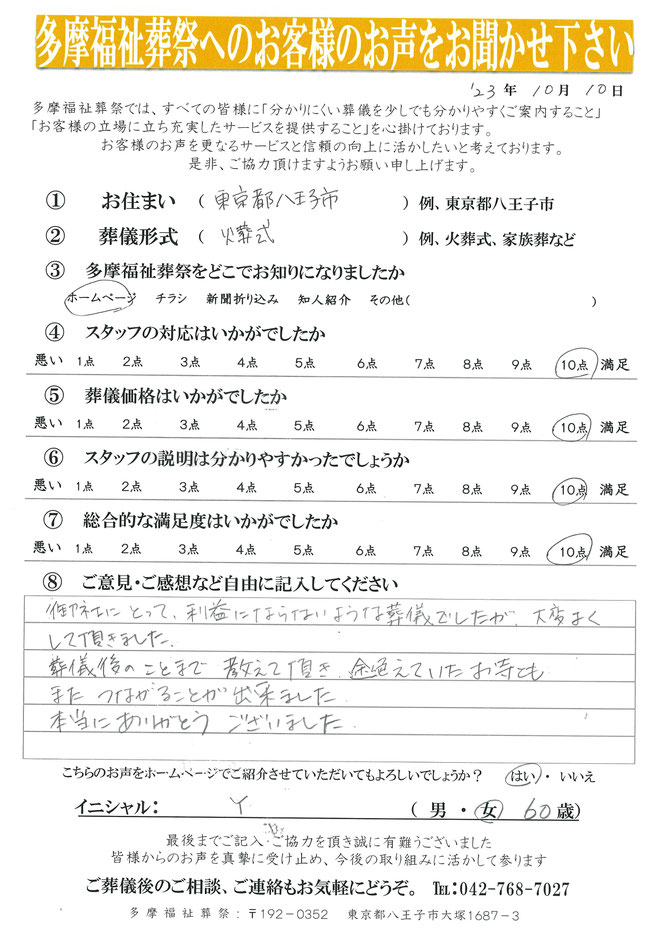 多摩福祉葬祭へのお客様のお声をお聞かせ下さい
'23 年 10 月 10 日
多摩福祉葬祭では、すべての皆様に「分かりにくい葬儀を少しでも分かりやすくご案内すること」
「お客様の立場に立ち充実したサービスを提供すること」を心掛けております。
お客様のお声を更なるサービスと信頼の向上に活かしたいと考えております。
是非、ご協力頂けますようお願い申し上げます。
① お住まい （ 東京都八王子市 ）例、東京都八王子市
② 葬儀形式 （ 火葬式 ）例、火葬式、家族葬など
③ 多摩福祉葬祭をどこでお知りになりましたか
ホームページ チラシ 新聞折り込み 知人紹介 その他( )
④ スタッフの対応はいかがでしたか
悪い 1点 2点 3点 4点 5点 6点 7点 8点 9点 10点 満足
⑤ 葬儀価格はいかがでしたか
悪い 1点 2点 3点 4点 5点 6点 7点 8点 9点 10点 満足
⑥ スタッフの説明は分かりやすかったでしょうか
悪い 1点 2点 3点 4点 5点 6点 7点 8点 9点 10点 満足
⑦ 総合的な満足度はいかがでしたか
悪い 1点 2点 3点 4点 5点 6点 7点 8点 9点 10点 満足
⑧ ご意見・ご感想など自由に記入してください
御社にとって、利益にならないような葬儀でしたが、大変よく
して頂きました。
葬儀後のことまで 教えて頂き、途絶えていたお寺とも
また つながることが出来ました
本当にありがとう ございました。
こちらのお声をホームページでご紹介させていただいてもよろしいでしょうか？ はい・いいえ
イニシャル： Y （ 男 ・ 女 60 歳）
最後までご記入・ご協力を頂き誠に有難うございました
皆様からのお声を真摯に受け止め、今後の取り組みに活かして参ります
ご葬儀後のご相談、ご連絡もお気軽にどうぞ。 TEL:042-768-7027
多摩福祉葬祭：〒192-0352 東京都八王子市大塚1687-3